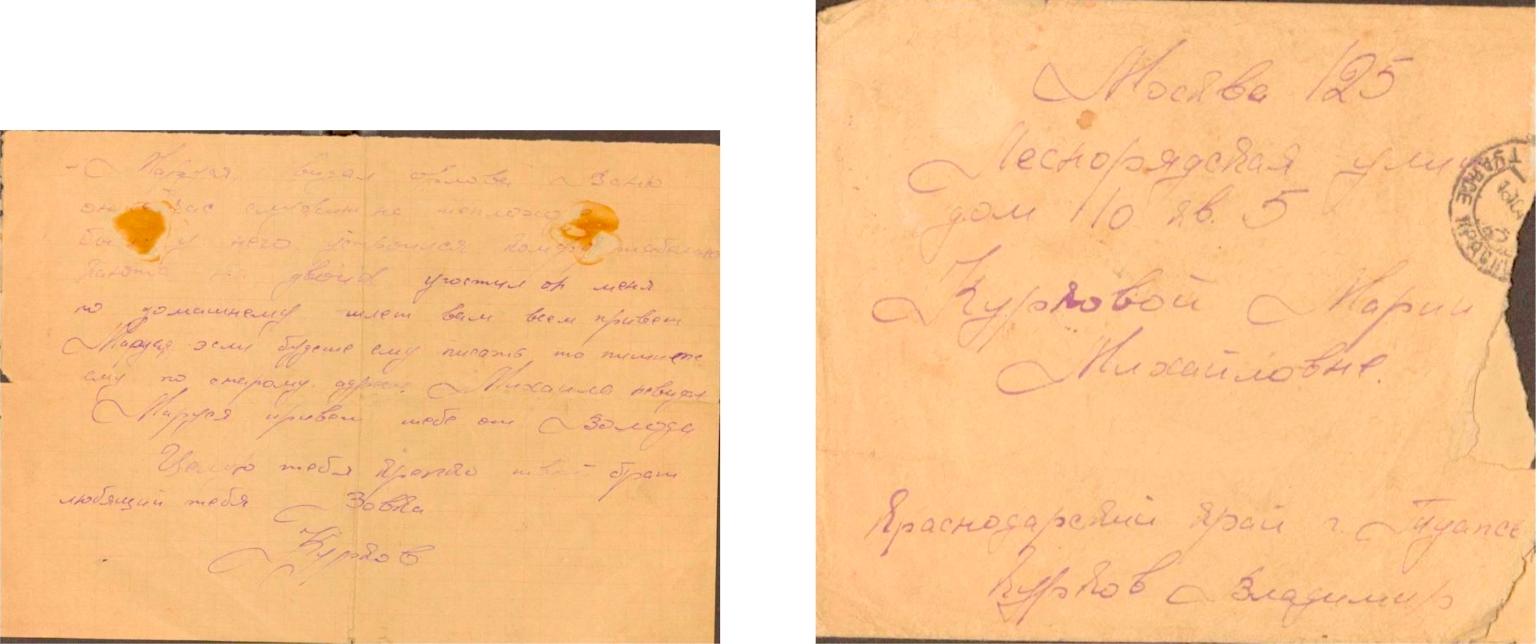 Маруся, видал
он
был у него устроился
на двоих угостил он меня
по домашнему шлет вам всем привет
Маруся если будете ему писать то пишите
ему по старому адр. Михаила невидал
Маруся привет тебе от Володи
Целую тебя крепко твой брат
любящий тебя Вовка
Курков
Москва 125
Леснорядская ули
дом 110 кв. 5
Курковой Марии
Михайловне.
Краснодарский край г. Туапсе
Курков Владимир
ТУАПСЕ КРАСНОД